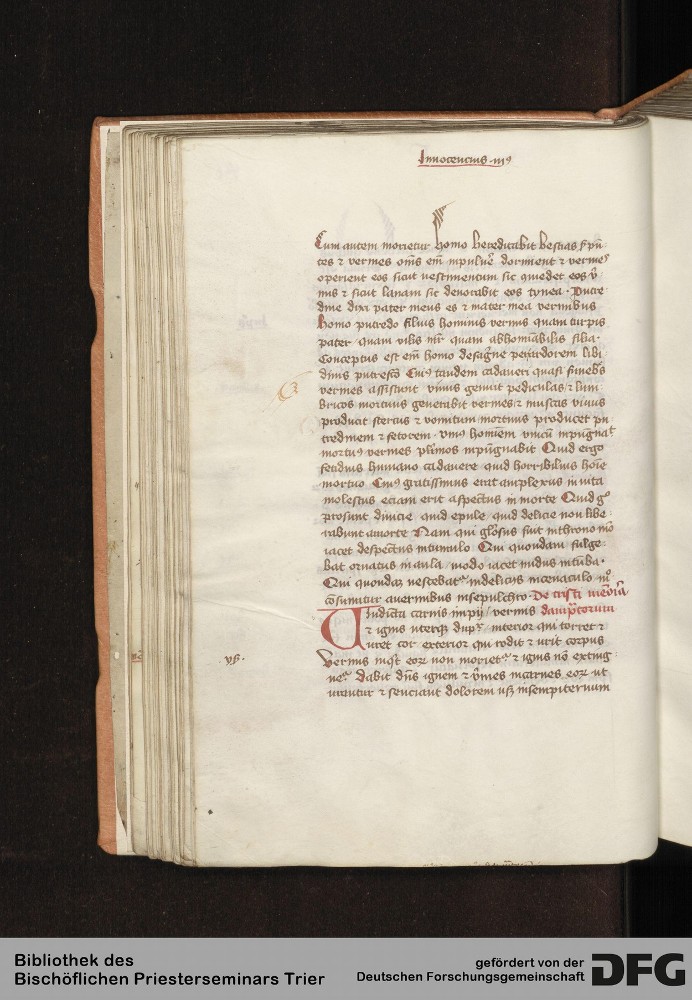 Innocencius · iijꝰ
Cum autem morietur homo hereditabit bestias ẜpē
tes ⁊ vermes oms em̄ in puluē dormient ⁊ vermeˢ
operient eos sicut vestimentum sic comedet eos v̄
mis ⁊ sicut lanam sic deuorabit eos tynea · Putre
dine dixi pater meus es ⁊ mater mea vermibus
homo putredo filius hominis vermis quam turpis
pater quam vilis mr̄ quam abhomīabilis filia ·
Conceptus est em̄ homo de sāgne p ardorem libi
dinis putresco Cuiꝰ tandem cadaueri quasi funebs
vermes assistunt viuus genuit pediculas ⁊ lum
bricos mortuus generabit vermes ⁊ muscas viuus
producit stercus ⁊ vomitum mortuus producet pu
tredinem ⁊ fetorem · vnꝰ homīem vnicū inpūgnat
mortuꝰ vermes plīmos inpūgnabit Quid ergo
fetidius humano cadauere quid horribilius hoīe
mortuo Cuiꝰ gratissimus erat amplexus in vita
molestus eciam erit aspectus in morte Quid gͦ
prosunt diuicie quid epule quid delicie non libe
rabunt a morte Nam qui glosus fuit in throno mo
iacet despectus in tumulo Qui quondam fulge
bat ornatus in aula modo iacet nudus in tūba ·
Qui quondaꝫ vescebatᷣ in delicijs in cenaculo mͦ
cōsumitur a vermibus in sepulchro · De tristi
dampnatorum
Uindicta carnis impij vermis
⁊ ignis uterqꝫ dupx interior qui torret ⁊
vret cor exterior qui rodit ⁊ urit corpus
Vermis inqͥt eoꝝ non morietᷣ ⁊ ignis nō exting
uetᷣ dabit dn̄s ignem ⁊ v̄mes in carnes eoꝝ ut
vrantur ⁊ senciant dolorem usqꝫ in sempiternum
Bibliothek des
Bischöflichen Priesterseminars Trier
gefördert von der
Deutschen Forschungsgemeinschaft
DFG